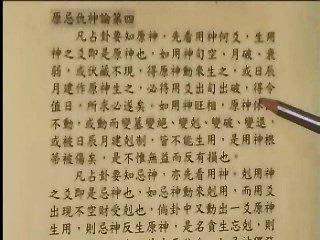 原忌仇神論第四
凡占卦要知原神,先看用神何爻,生用
神之爻即是原神也,如用神旬空、月破、衰
弱,或伏藏不現,得原神動來生之,或日辰
月建作原神生之,必待用爻出旬出破,得令
值日,所求必遂矣。如用神旺相,原神休
不動,或動而變墓變絕、變剋、變破、變退,
或被日辰月建剋制,皆不能生用,是用神根
蒂被傷矣,是不惟無益而反有損也。
凡占卦要知忌神,亦先看用神。剋用神
之爻即是忌神也,如忌神動來剋用,而用爻
出現不空則受剋也,倘卦中又動出一爻原神
生用,則忌神反生原神,是名貪生忘剋,則